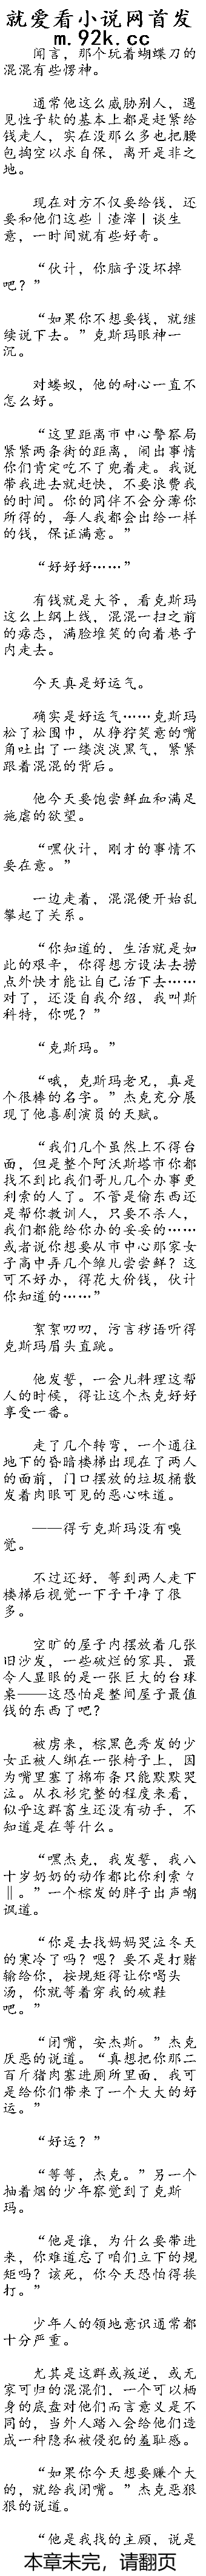 就爱看小说网首发
m.92k.cc
闻言，那个玩着蝴蝶刀的
混混有些愣神。
通常他这么威胁别人，遇
见性子软的基本上都是赶紧给
钱走人，实在没那么多也把腰
包掏空以求自保，离开是非之
地。
现在对方不仅要给钱，还
要和他们这些｜渣滓｜谈生
意，一时间就有些好奇。
“伙计，你脑子没坏掉
吧？”
“如果你不想要钱，就继
续说下去。”克斯玛眼神一
沉。
对蝼蚁，他的耐心一直不
怎么好。
“这里距离市中心警察局
紧紧两条街的距离，闹出事情
你们肯定吃不了兜着走。我说
带我进去就赶快，不要浪费我
的时间。你的同伴不会分薄你
所得的，每人我都会出给一样
的钱，保证满意。”
“好好好……”
有钱就是大爷，看克斯玛
这么上纲上线，混混一扫之前
的痞态，满脸堆笑的向着巷子
内走去。
今天真是好运气。
确实是好运气……克斯玛
松了松围巾，从狰狞笑意的嘴
角吐出了一缕淡淡黑气，紧紧
跟着混混的背后。
他今天要饱尝鲜血和满足
施虐的欲望。
“嘿伙计，刚才的事情不
要在意。”
一边走着，混混便开始乱
攀起了关系。
“你知道的，生活就是如
此的艰辛，你得想方设法去捞
点外快才能让自己活下去……
对了，还没自我介绍，我叫斯
科特，你呢？”
“克斯玛。”
“哦，克斯玛老兄，真是
个很棒的名字。”杰克充分展
现了他喜剧演员的天赋。
“我们几个虽然上不得台
面，但是整个阿沃斯塔市你都
找不到比我们哥儿几个办事更
利索的人了。不管是偷东西还
是帮你教训人，只要不杀人，
我们都能给你办的妥妥的……
或者说你想要从市中心那家女
子高中弄几个雏儿尝尝鲜？这
可不好办，得花大价钱，伙计
你知道的……”
絮絮叨叨，污言秽语听得
克斯玛眉头直跳。
他发誓，一会儿料理这帮
人的时候，得让这个杰克好好
享受一番。
走了几个转弯，一个通往
地下的昏暗楼梯出现在了两人
的面前，门口摆放的垃圾桶散
发着肉眼可见的恶心味道。
——得亏克斯玛没有嗅
觉。
不过还好，等到两人走下
楼梯后视觉一下子干净了很
多。
空旷的屋子内摆放着几张
旧沙发，一些破烂的家具，最
令人显眼的是一张巨大的台球
桌——这恐怕是整间屋子最值
钱的东西了吧？
被虏来，棕黑色秀发的少
女正被人绑在一张椅子上，因
为嘴里塞了棉布条只能默默哭
泣。从衣衫完整的程度来看，
似乎这群畜生还没有动手，不
知道是在等什么。
“嘿杰克，我发誓，我八
十岁奶奶的动作都比你利索々
‖。”一个棕发的胖子出声嘲
讽道。
“你是去找妈妈哭泣冬天
的寒冷了吗？嗯？要不是打赌
输给你，按规矩得让你喝头
汤，你就等着穿我的破鞋
吧。”
“闭嘴，安杰斯。”杰克
厌恶的说道。“真想把你那二
百斤猪肉塞进厕所里面，我可
是给你们带来了一个大大的好
运。”
“好运？”
“等等，杰克。”另一个
抽着烟的少年察觉到了克斯
玛。
“他是谁，为什么要带进
来，你难道忘了咱们立下的规
矩吗？该死，你今天恐怕得挨
打。”
少年人的领地意识通常都
十分严重。
尤其是这群或叛逆，或无
家可归的混混们，一个可以栖
身的底盘对他们而言意义是不
同的，当外人踏入会给他们造
成一种隐私被侵犯的羞耻感。
“如果你今天想要赚个大
的，就给我闭嘴。”杰克恶狠
狠的说道。
“他是我找的主顾，说是
本章未完，请翻页